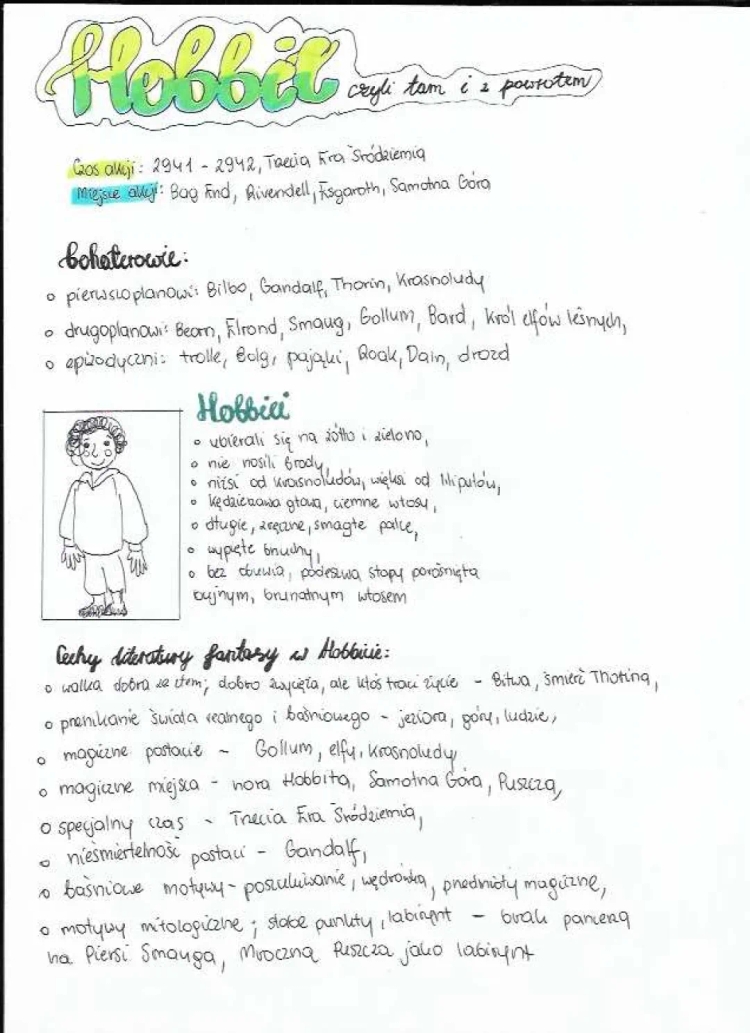 Hobbit czyli tam i z powrotem
Czas akcji: 2941 - 2942, Trzecia Era Śródziemia
Miejsce akcji: Bag End, Rivendell, Esgaroth, Samotna Góra
Bohaterowie:
o pierwszoplanowi: Bilbo, Gandalf, Thorin, Krasnoludy
o drugoplanowi: Beorn, Elrond, Smaug, Gollum, Bard, Król elfów leśnych,
o epizodyczni: trolle, Bolg, pająki, Roak, Dain, drozd
Hobbici
o ubierali się na żółto i zielono,
o nie nosili brody,
o niżsi od krasnoludów, więksi od liliputów,
o kędzierzawa głowa, ciemne włosy,
o długie, zręczne, smagłe palce,
o wypięte brzuchy,
o bez obuwia, podeszwa stopy porośnięta
bujnym, brunatnym włosem
Cechy literatury fantasy w Hobbicie:
o walka dobra ze złem; dobro zwycięża, ale ktoś traci życie - Bitwa, śmierć Thorina,
o przenikanie świata realnego i baśniowego - jeziora, góry, ludzie,
o magiczne postacie - Gollum, elfy, krasnoludy
o magiczne miejsca - nora Hobbita, Samotna Góra, Puszcza,
o specjalny czas - Trzecia Era Śródziemia,
o nieśmiertelność postaci - Gandalf,
o baśniowe motywy - poszukiwanie, wędrówka, przedmioty magiczne,
o motywy mitologiczne; słabe punkty, labirynt - brak pancerza
na Piersi Smauga, Mroczna Puszcza jako labirynt